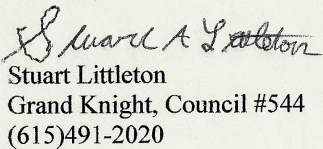 Stuart A Littleton
Stuart Littleton
Grand Knight, Council #544
(615)491-2020